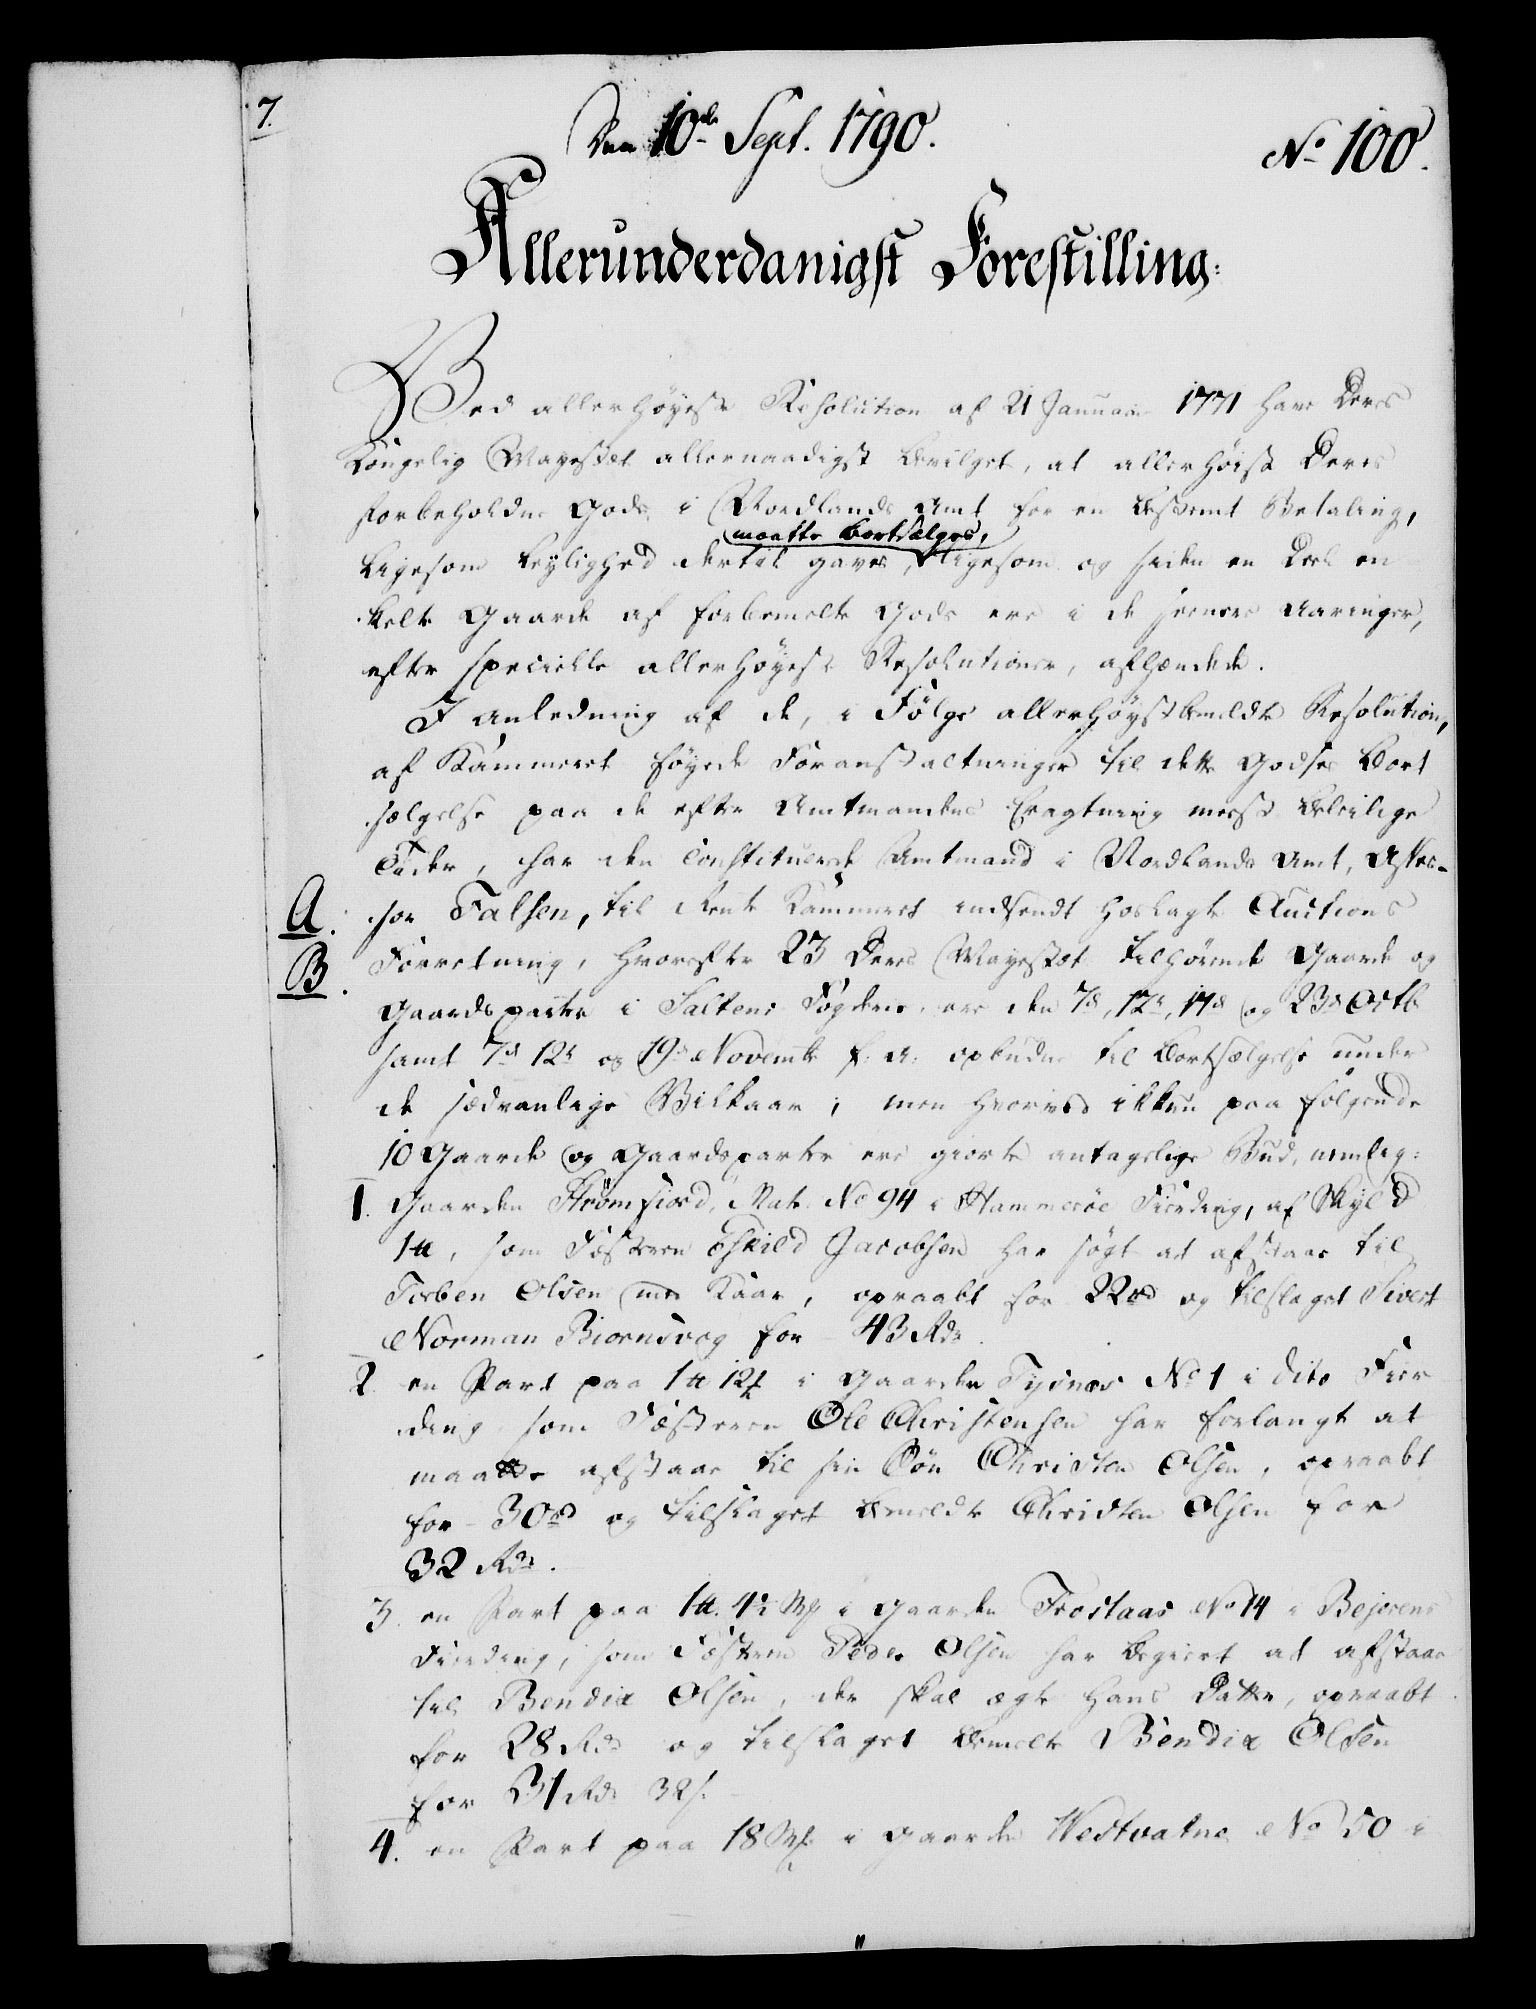 7.
Den 10de Sept. 1790.
No 100.
Allerunderdanigst Forestilling:
Ved allerhøyeste Resolution af 21 Januarii 1771 have Deres
Kongelig Mayestæt allernaadigst bevilget, at allerhøist Deres
forbeholdne Gods i Nordlands Amt for en bestemt Betaling,
maatte bortsælges,
ligesom leylighed dertil gaves, ligesom og siden en Deel en-
kelte Gaarde af forbemelte Gods ere i de seenere Aaringer,
efter specielle allerhøyeste Resolutioner, afhændede.
I anledning af de, i Følge allerhøystbemeldte Resolution,
af Kammeret føyede Foranstaltninger til dette Godses Bort
sælgelse paa de efter Amtmandens Eragtning meest beleilige
Tider, har den Constituerede Amtmand i Nordlands Amt, Asses-
A. sor Falsen, til Rente Kammeret indsendt hoslagte Auctions
B. Forretning, hvorefter 23 Deres Mayestæt tilhørende Gaarde og
Gaardsparter i Saltens Fogderie ere den 7de, 12te, 17de og 23de Octb
samt 7de 12te og 19de Novembr f: A: opbudne til Bortsælgelse under
de sædvanlige Vilkaar; men hvorved ikkun paa følgende
10 Gaarde og Gaardsparter ere giorte antagelige Bud, nemlig:
1. Gaarden Strømfiord, Matr. No 94 i Hammerøe Fierding, af Skyld
1 ℔, som Fæsteren Eskild Jacobsen har søgt at afstaae til
Torben Olsen mod Kaar, opraabt for 22 rd og tilslaget Sivert
Norman Biørnsvog for 43 Rdr.
2. en Part paa 1 ℔ 12 ℳ i Gaarden Tysnæs No 1 i dito Fier
ding som Fæsteren Ole Christensen har forlangt at
maatte afstaae til sin Søn Christen Olsen, opraabt
for 30 rd og tilslaget bemeldte Christen Olsen for
32 Rdr.
3. en Part paa 1 ℔. 4½ ℳ i Gaarden Trostaas No 14 i Bejerens
Fierding, som Fæsteren Peder Olsen har begiert at afstaae
til Bendix Olsen, der skal ægte hans Datter, opraabt
for 28 Rdr og tilslaget bemelte Bendix Olsen
for 31 Rdr 32 s.
4. en Part paa 18 ℳ i Gaarden Westvatne No 50 i